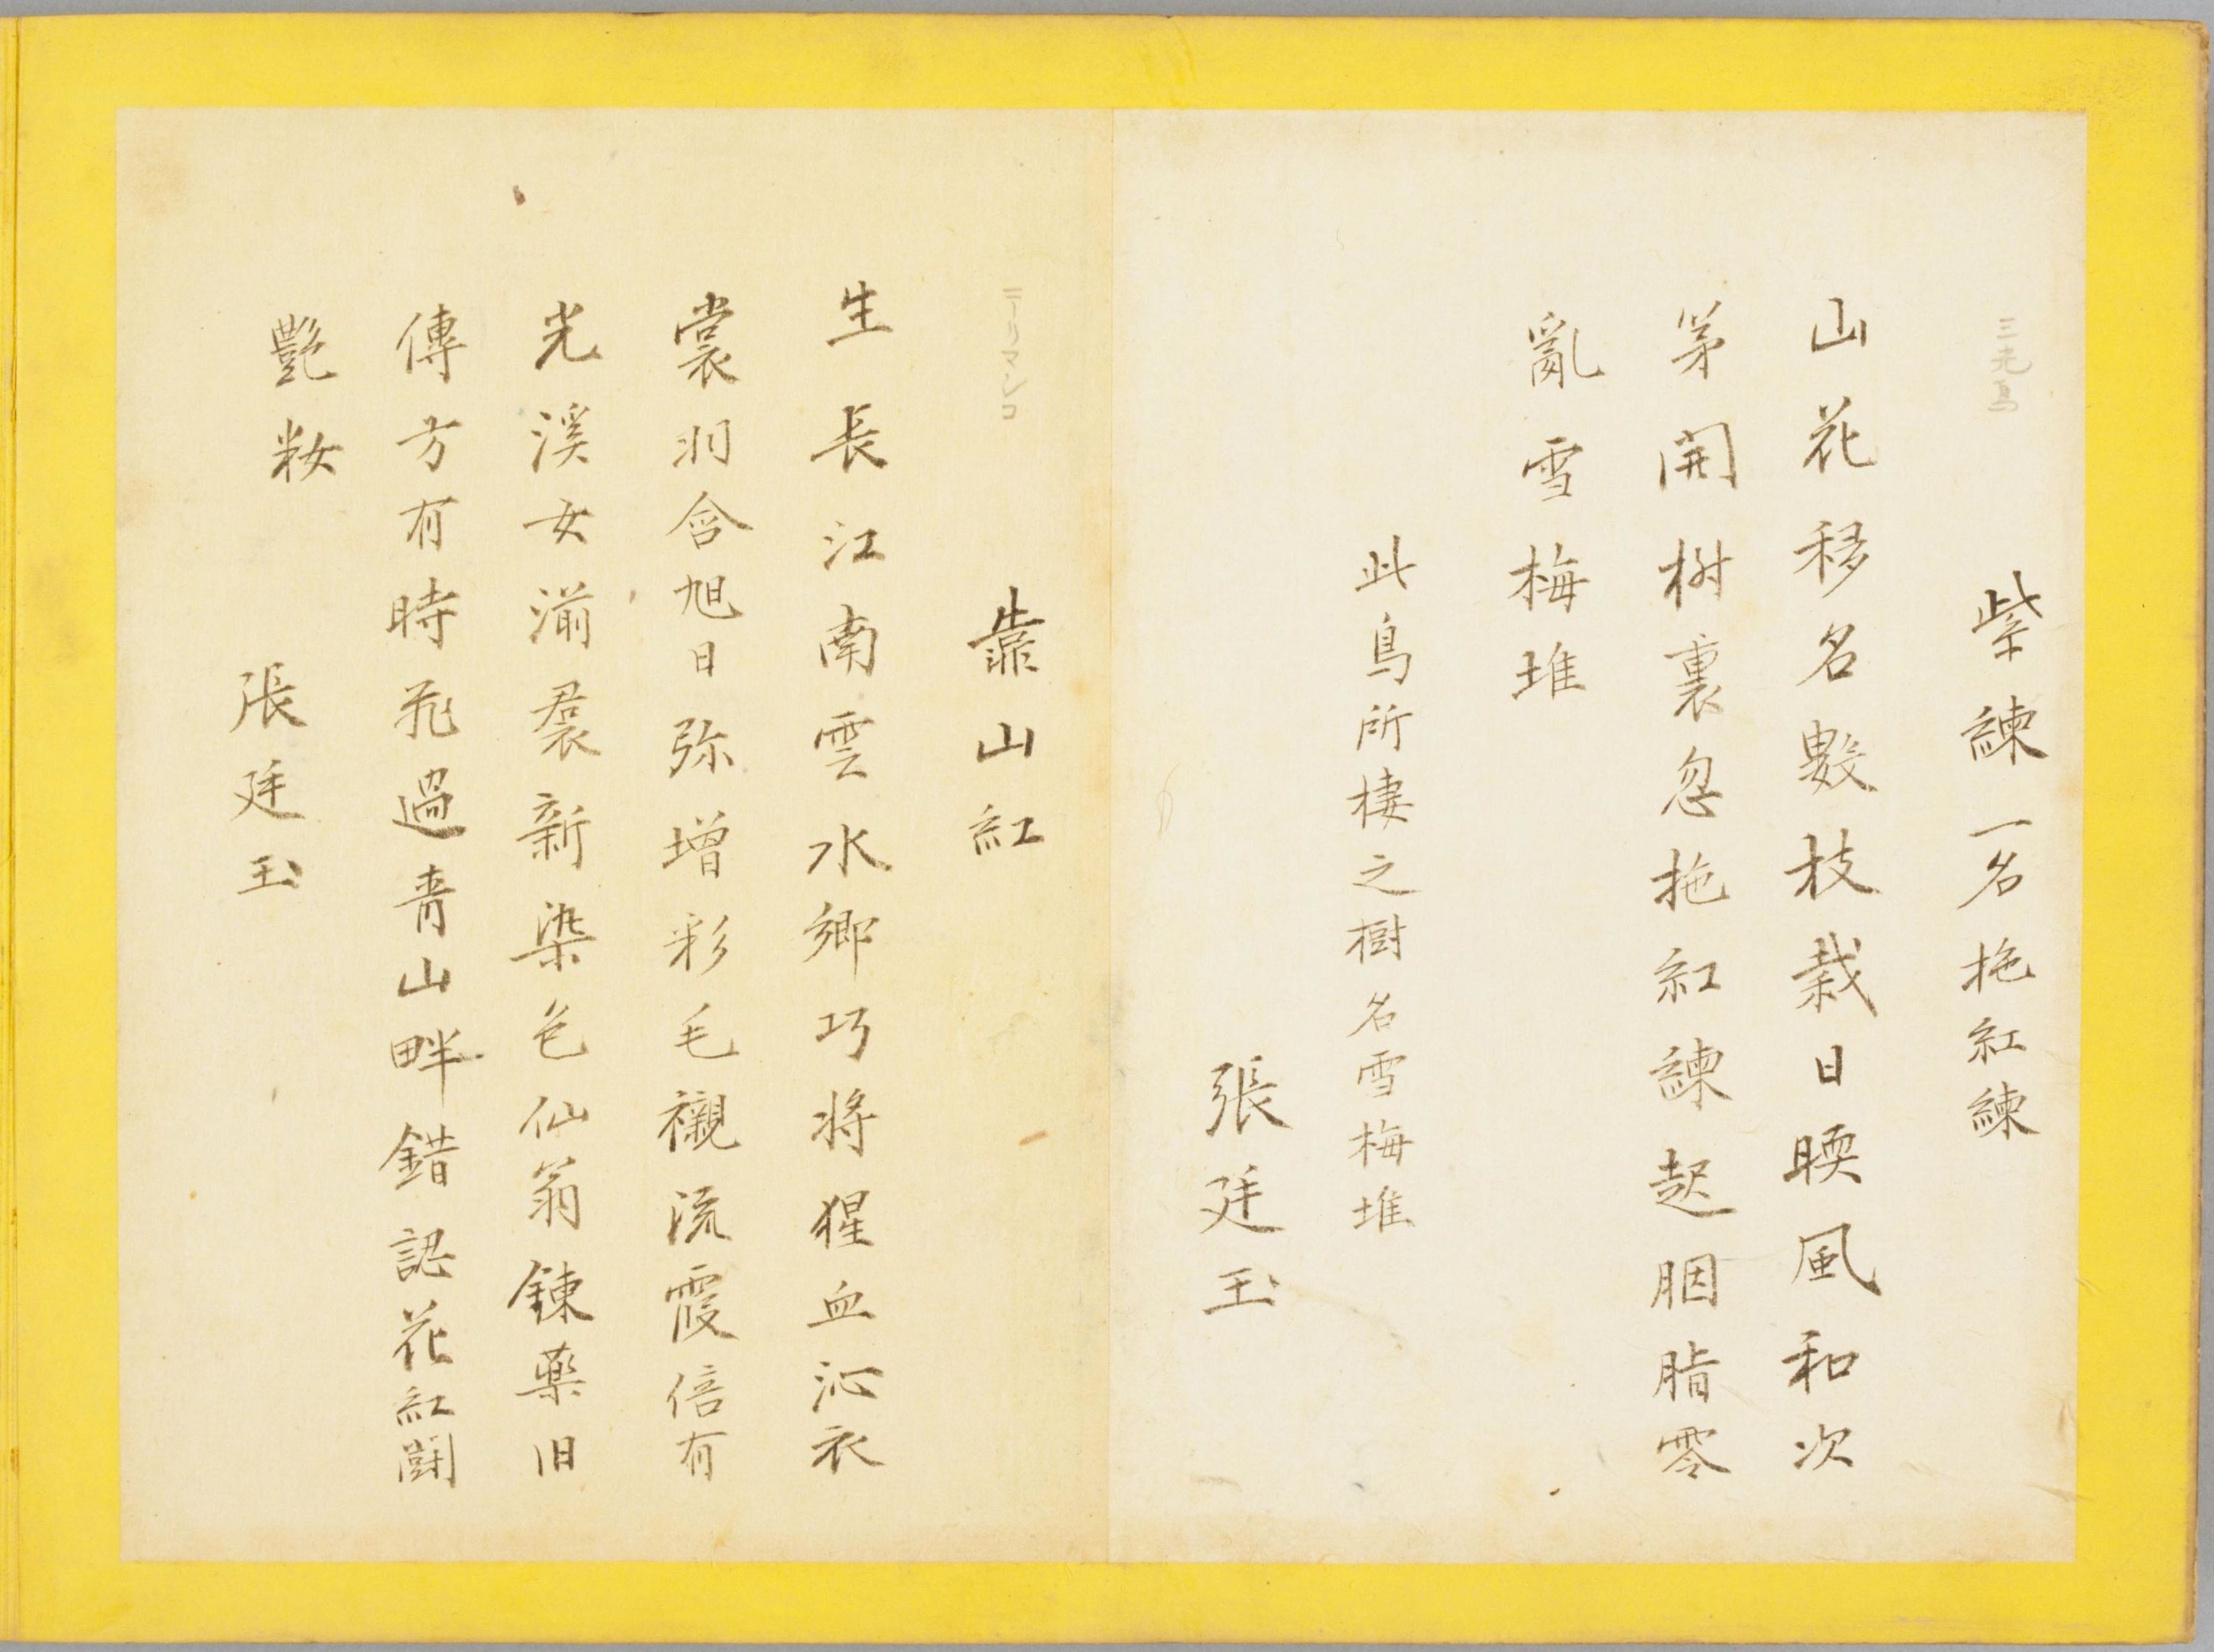 三光鳥
紫練一名拖紅練
山花移名數枝栽日暎風和次
苐開樹裏忽拖紅練起胭脂零
亂雪梅堆
此鳥所棲之樹名雪梅堆
張廷玉
靠山紅
生長江南雲水鄉巧將猩血沁衣
裳羽含旭日弥增彩毛襯流霞倍有
光溪女湔裠新染色仙翁鍊藥旧
傳方有時飛過青山畔錯認花紅鬪
艷粧
張廷玉